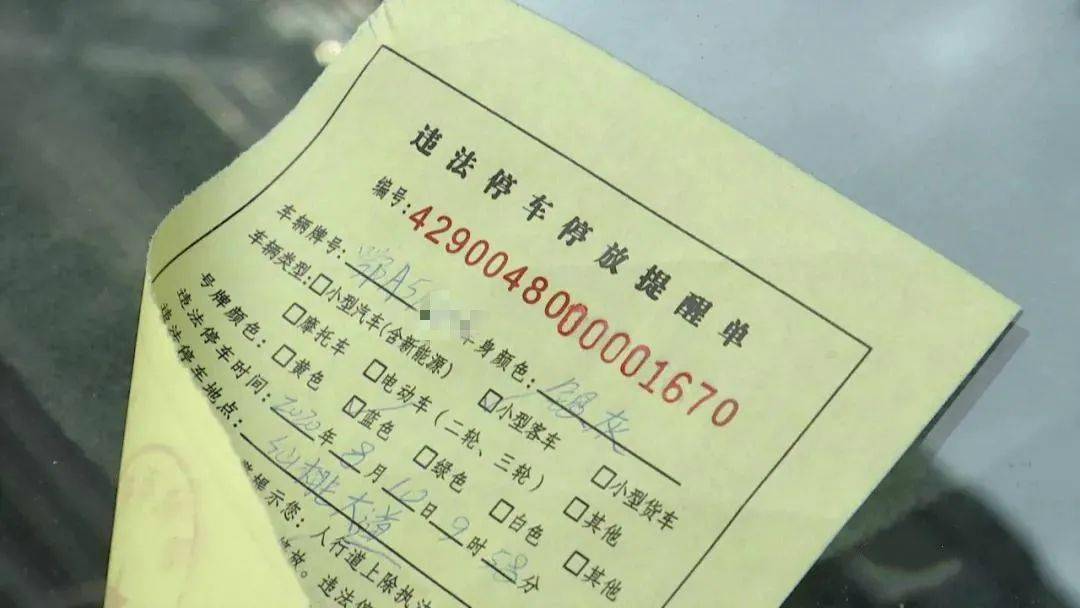 违法停车停放提醒单
编号:42900480000001670
车辆牌号: 鄂A5 车身颜色: 银灰
车辆类型:□小型汽车(含新能源) ☑小型客车 □小型货车
□摩托车 □电动车(二轮、三轮) □其他
号牌颜色: □黄色 ☑蓝色 □绿色 □白色 □其他
违法停车时间: 2020年8月12日9时58分
违法停车地点: 仙桃大道
提示您: 人行道上除执法
放。违法停